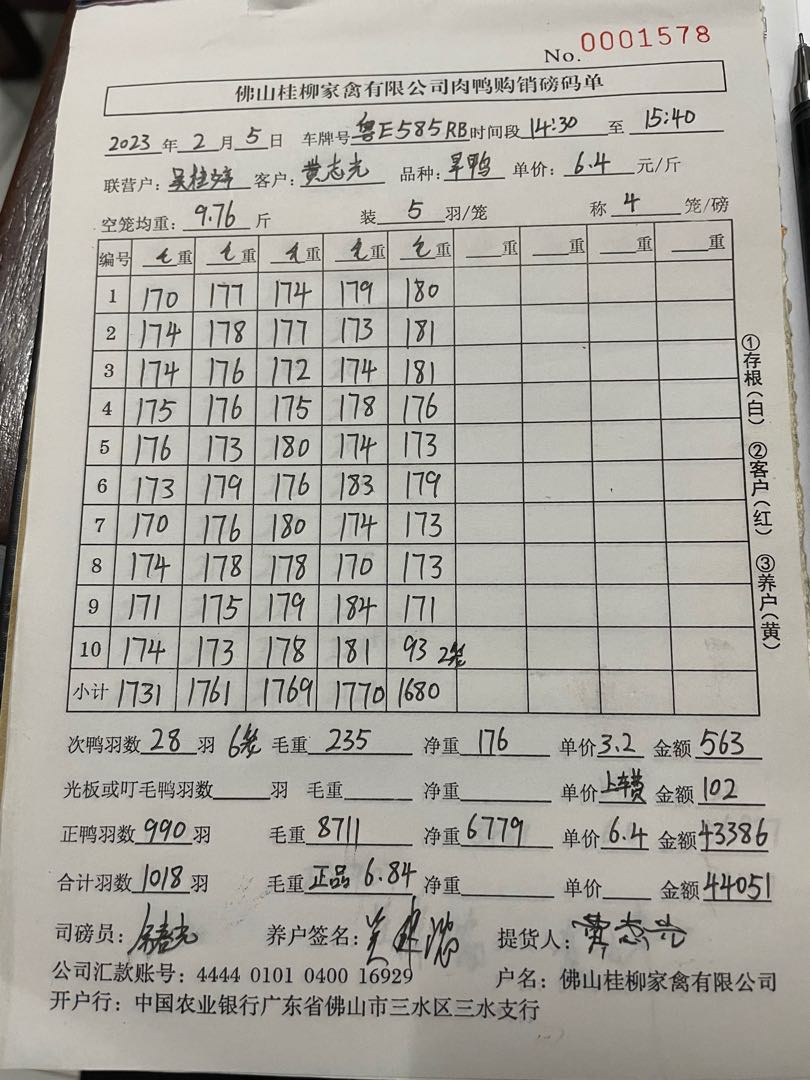 No. 0001578
佛山桂柳家禽有限公司肉鸭购销磅码单
2023 年 2 月 5 日 车牌号 粤E585RB 时间段 14:30 至 15:40
联营户: 吴桂 客户: 黄志光 品种: 旱鸭 单价: 6.4 元/斤
空笼均重: 9.76 斤 装 5 羽/笼 称 4 笼/磅
编号 毛重 毛重 毛重 毛重 毛重 重 重 重 重
1 170 177 174 179 180
2 174 178 177 173 181
3 174 176 172 174 181
4 175 176 175 178 176
5 176 173 180 174 173
6 173 179 176 183 179
7 170 176 180 174 173
8 174 178 178 170 173
9 171 175 179 184 171
10 174 173 178 181 93 2笼
小计 1731 1761 1769 1770 1680
次鸭羽数 28 羽 6笼 毛重 235 净重 176 单价 3.2 金额 563
光板或叮毛鸭羽数 羽 毛重 净重 单价 上车费 金额 102
正鸭羽数 990 羽 毛重 8711 净重 6779 单价 6.4 金额 43386
合计羽数 1018 羽 毛重 正品 6.84 净重 单价 金额 44051
司磅员: 养户签名: 提货人: 黄志光
公司汇款账号: 4444 0101 0400 16929 户名: 佛山桂柳家禽有限公司
开户行: 中国农业银行广东省佛山市三水区三水支行
①存根(白) ②客户(红) ③养户(黄)